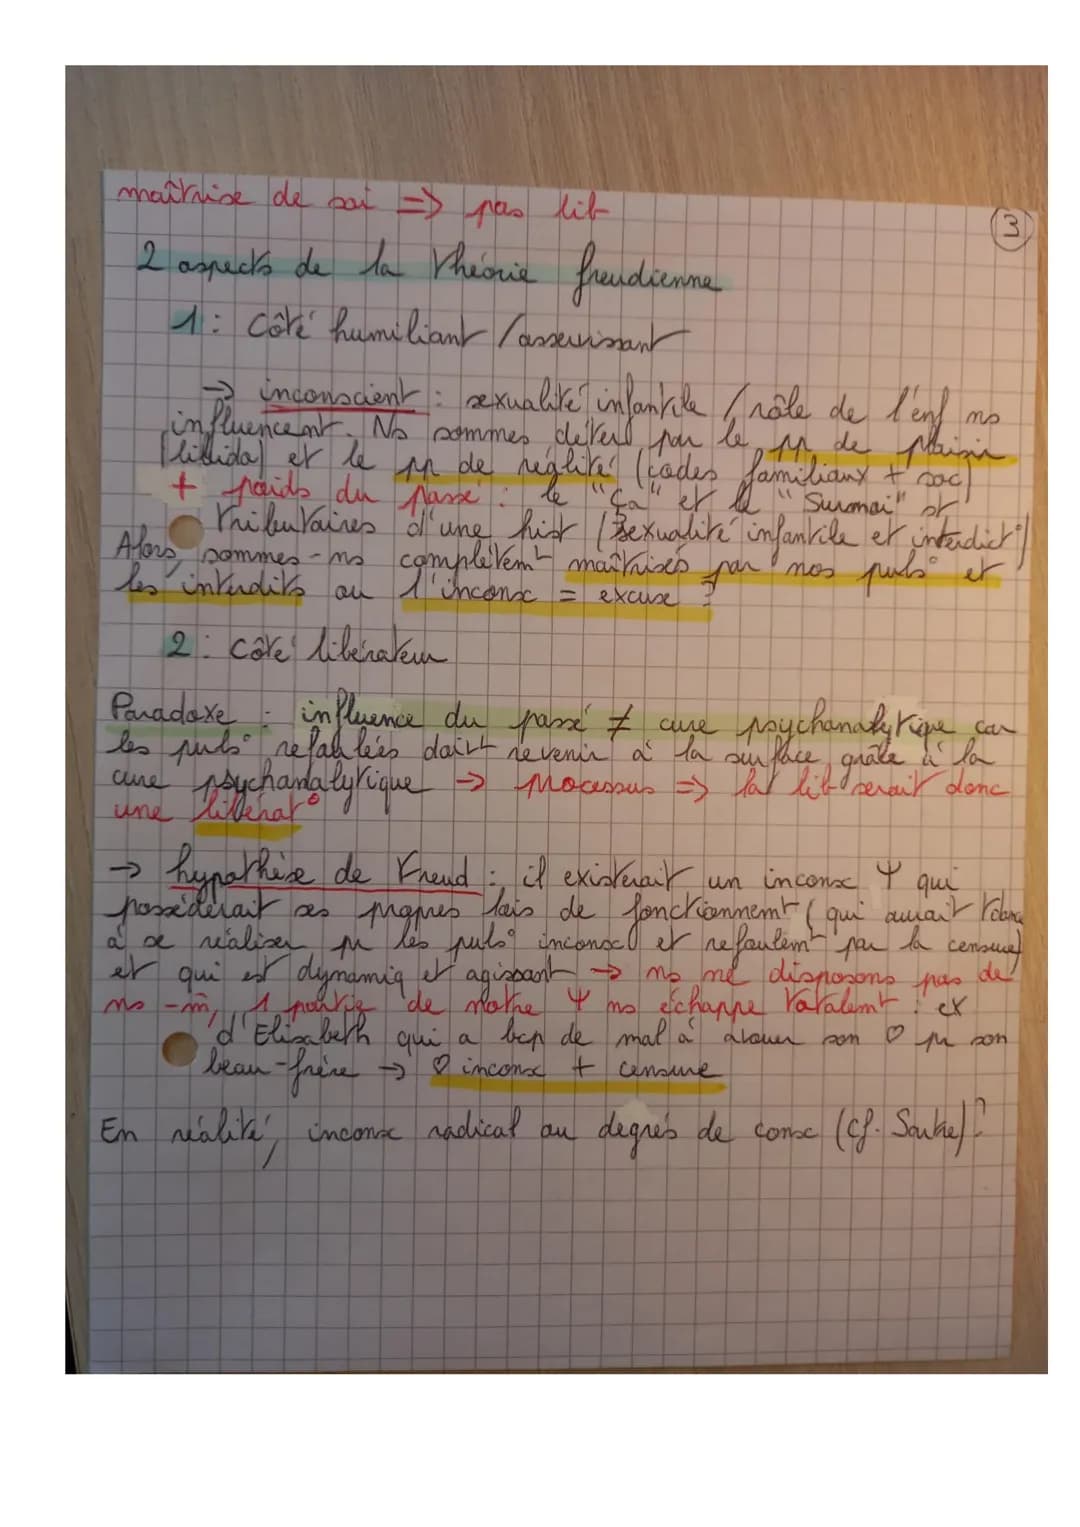 maîtrise de soi => pas lib
3
2 aspects de la théorie freudienne
1 : Côté humiliant / asservissant
→ inconscient : sexualité infantile / rôle de l'enf ns
influencent. Ns sommes déterᵈ par le pp de plaisir
(libido) et le pp de réalité (codes familiaux + soc)
+ poids du passé : le "Ça" et le "Surmoi" st
tributaires d'une hist (sexualité infantile et interdict°)
Alors, sommes-ns complètemᵗ maîtrisés par nos puls° et
les interdits ou l'inconsc = excuse ?
2 : Côté libérateur
Paradoxe : influence du passé ≠ cure psychanalytique car
les puls° refoulées doivt revenir à la surface grâce à la
cure psychanalytique → processus => la lib serait donc
une libérat°
→ hypothèse de Freud : il existerait un inconsc Ψ qui
possèderait ses propres lois de fonctionnemt (qui aurait
à se réaliser pr les puls° inconsc et refoulemᵗ par la censure)
et qui est dynamiq et agissant → ns ne disposons pas de
ns-m̂, 1 partie de notre Ψ ns échappe totalemt : ex
d'Elisabeth qui a bcp de mal à avouer son ♡ pr son
beau-frère → ♡ inconsc + censure
En réalité, inconsc radical ou degrés de consc (cf. Sartre) ?